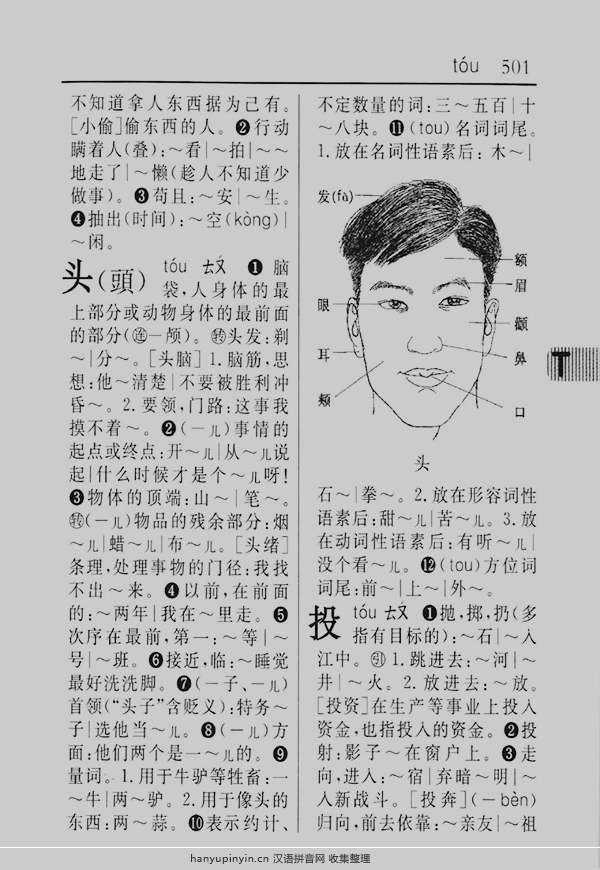 tóu 501
不知道拿人东西据为己有。
[小偷]偷东西的人。❷行动
瞒着人(叠):～看|～拍|～～
地走了|～懒(趁人不知道少
做事)。❸苟且:～安|～生。
❹抽出(时间):～空(kòng)|
～闲。
头(頭) tóu ㄊㄡˊ ❶脑
袋,人身体的最
上部分或动物身体的最前面
的部分(连—颅)。转头发:剃
～|分～。[头脑]1.脑筋,思
想:他～清楚|不要被胜利冲
昏～。2.要领,门路:这事我
摸不着～。❷(—儿)事情的
起点或终点:开～儿|从～儿说
起|什么时候才是个～儿呀!
❸物体的顶端:山～|笔～。
转(—儿)物品的残余部分:烟
～儿|蜡～儿|布～儿。[头绪]
条理,处理事物的门径:我找
不出～来。❹以前,在前面
的:～两年|我在～里走。❺
次序在最前,第一:～等|～
号|～班。❻接近,临:～睡觉
最好洗洗脚。❼(—子、—儿)
首领(“头子”含贬义):特务～
子|选他当～儿。❽(—儿)方
面:他们两个是一～儿的。❾
量词。1.用于牛驴等牲畜:一
～牛|两～驴。2.用于像头的
东西:两～蒜。❿表示约计、
不定数量的词:三～五百|十
～八块。⓫(tou)名词词尾。
1.放在名词性语素后:木～|
发(fà)
额
眉
眼
颧
耳
鼻
颊
口
头
T
石～|拳～。2.放在形容词性
语素后:甜～儿|苦～儿。3.放
在动词性语素后:有听～儿|
没个看～儿。⓬(tou)方位词
词尾:前～|上～|外～。
投 tóu ㄊㄡˊ ❶抛,掷,扔(多
指有目标的):～石|～入
江中。引1.跳进去:～河|～
井|～火。2.放进去:～放。
[投资]在生产等事业上投入
资金,也指投入的资金。❷投
射:影子～在窗户上。❸走
向,进入:～宿|弃暗～明|～
入新战斗。[投奔](—bèn)
归向,前去依靠:～亲友|～祖
hanyupinyin.cn 汉语拼音网 收集整理